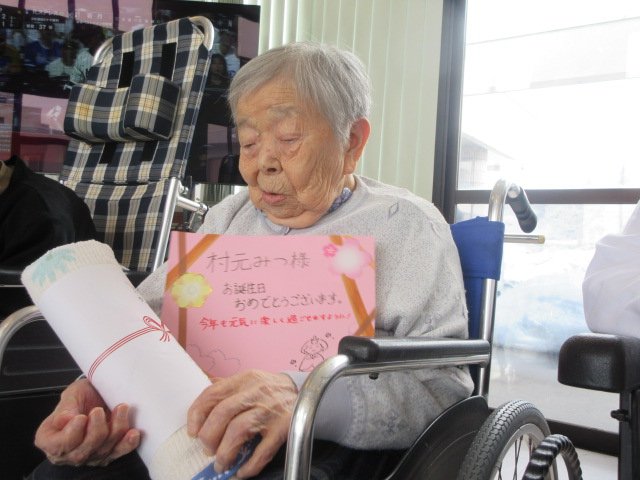 村元みつ様
お誕生日
おめでとうございます。
今年も元気に楽しく過ごせますように!